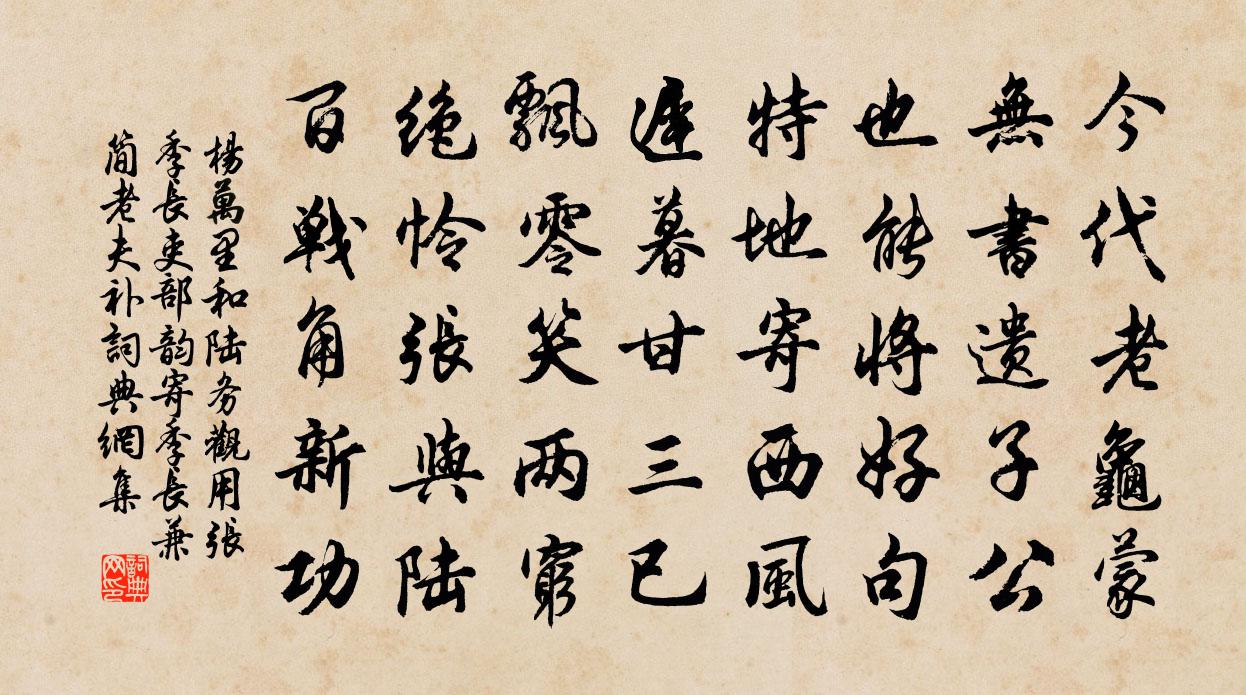 今代老龜蒙
無書遗子公
也能將好句
特地寄西風
遲暮甘三已
飄零笑两窮
絶怜張與陆
百戦角新功
楊萬里和陆务觀用張
季長吏部韵寄季長兼
简老夫补詞典網集
詞典网印